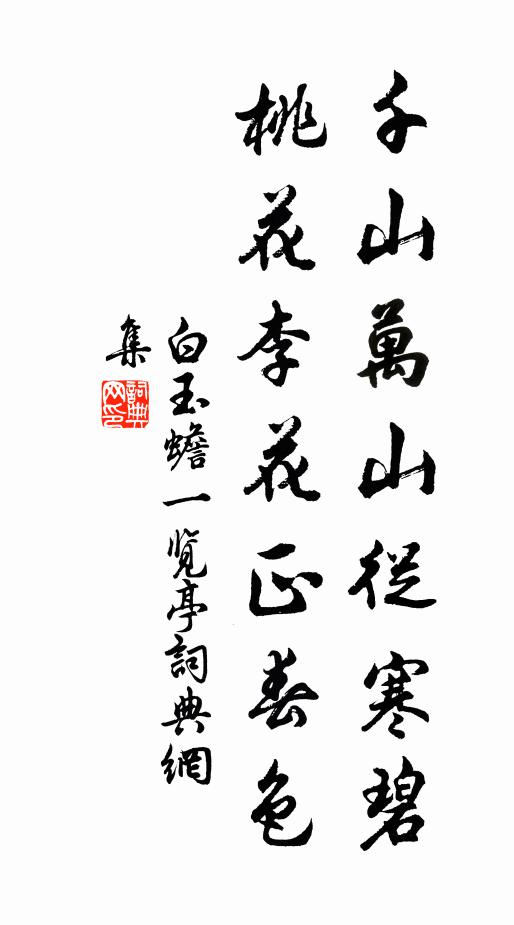 千山萬山從寒碧
桃花李花正春色
白玉蟾一览亭詞典網
集
詞典
网印